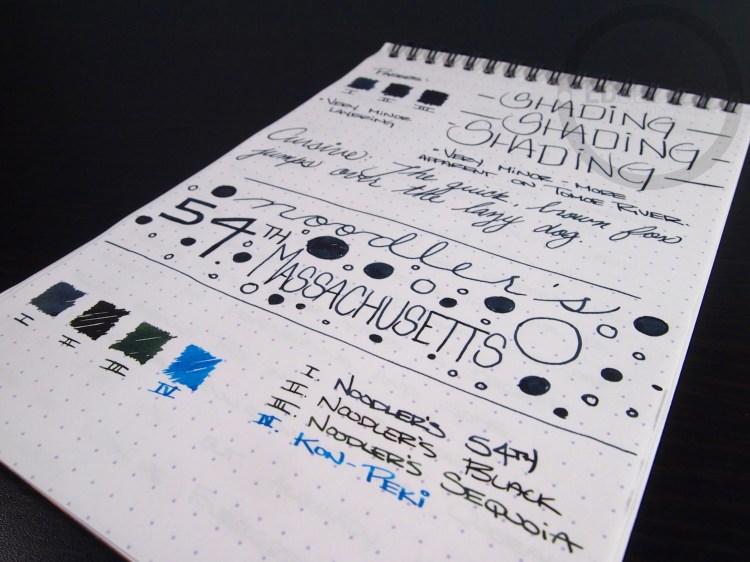 PASSES:
I II III
• VERY MINOR
LAYERING
– SHADING –
– SHADING –
– SHADING –
• VERY MINOR. MORE
APPARENT ON TOMOE RIVER.
Cursive: The quick, brown fox
jumps over the lazy dog.
noodler's
54TH
MASSACHUSETTS
I II III IV
I. NOODLER'S 54TH
II. NOODLER'S BLACK
III. NOODLER'S SEQUOIA
IV. KON-PEKI